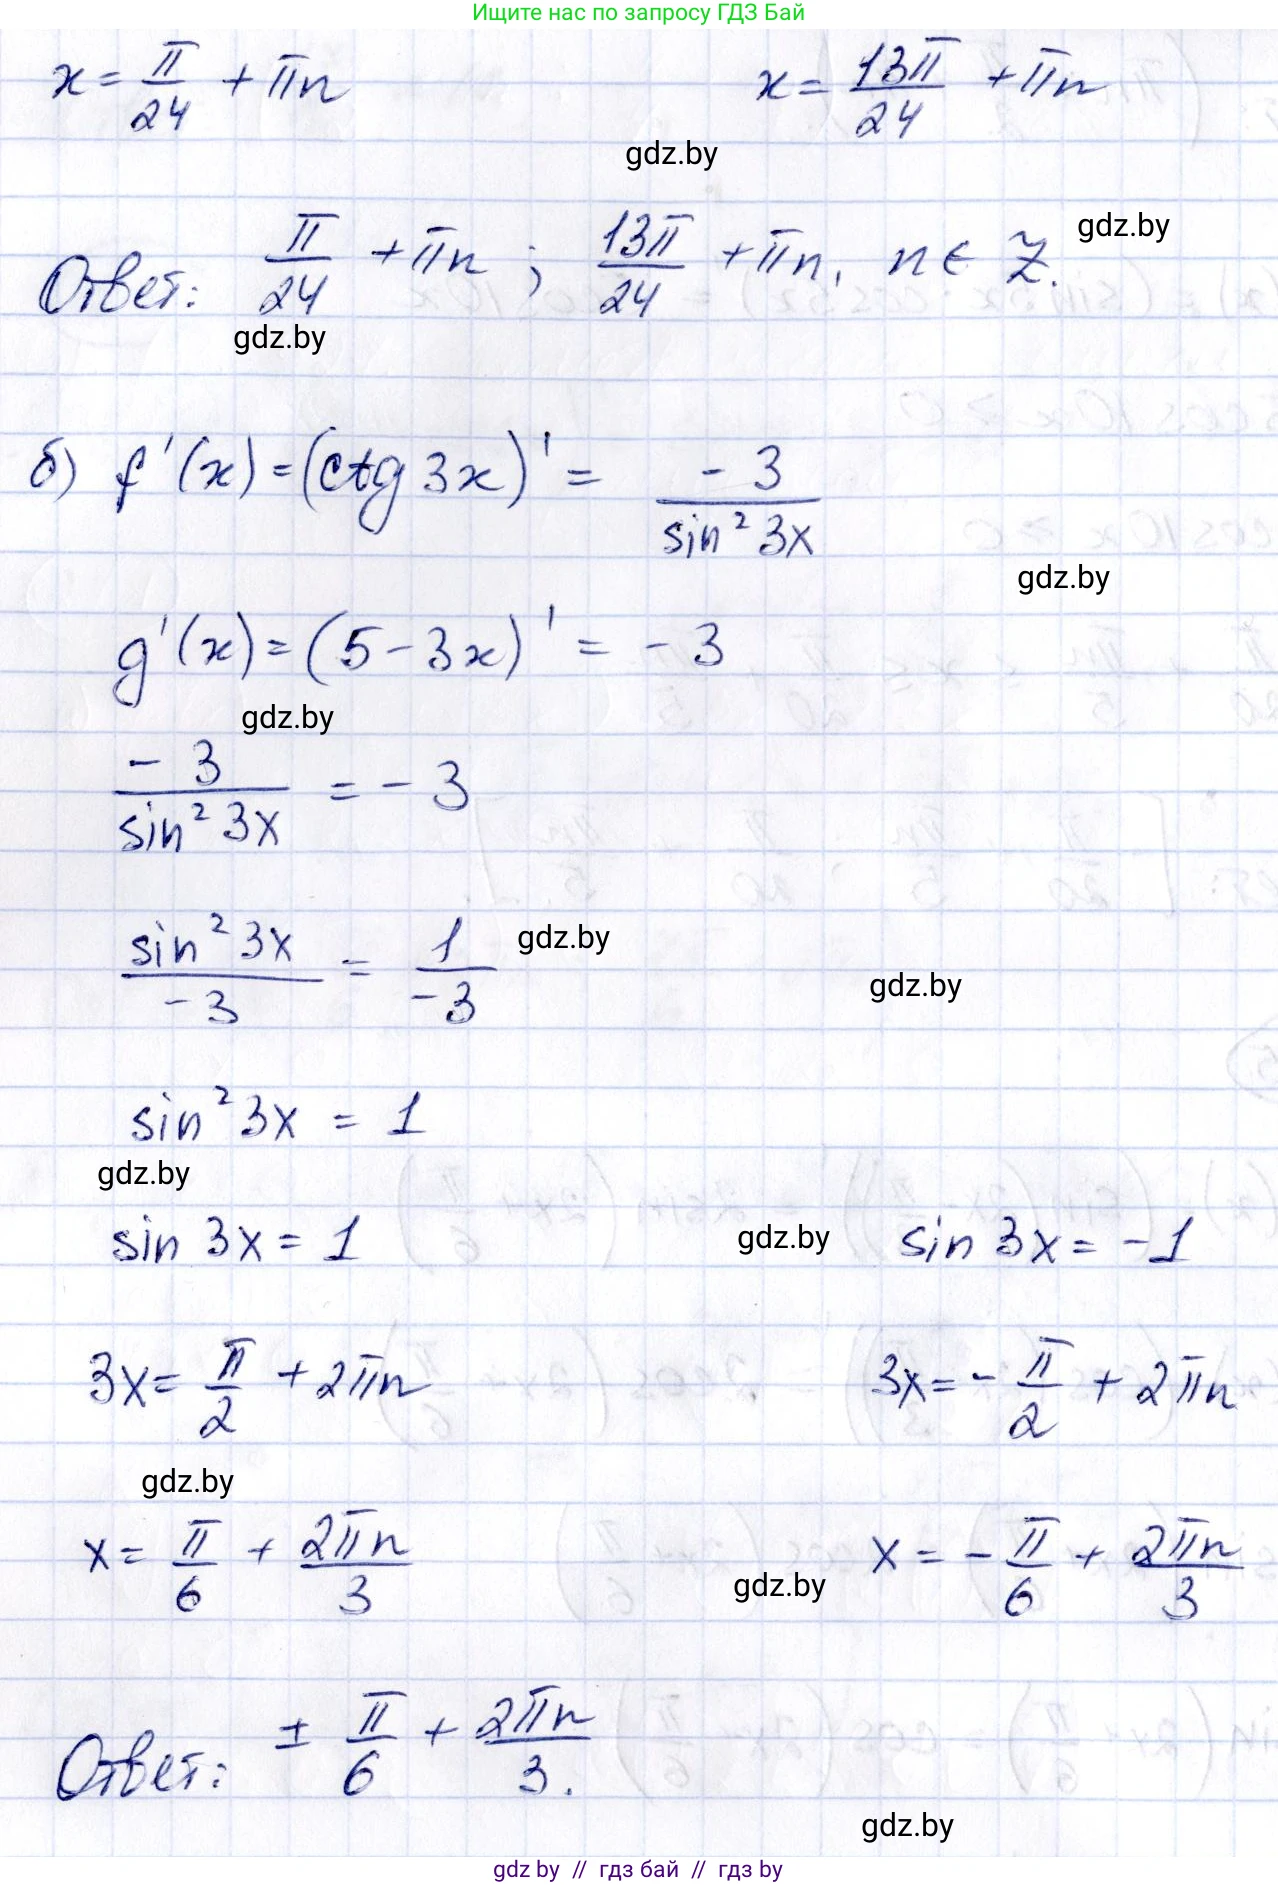 Ищите нас по запросу ГДЗ Бай
x = π/24 + πn   x = 13π/24 + πn
gdz.by
Ответ: π/24 + πn ; 13π/24 + πn, n ∈ Z.
gdz.by
gdz.by
б) f'(x) = (ctg 3x)' = -3/sin² 3x
gdz.by
g'(x) = (5 - 3x)' = -3
gdz.by
-3/sin² 3x = -3
sin² 3x/-3 = 1/-3
gdz.by
gdz.by
sin² 3x = 1
gdz.by
sin 3x = 1   gdz.by   sin 3x = -1
3x = π/2 + 2πn   3x = -π/2 + 2πn
gdz.by
x = π/6 + 2πn/3   gdz.by   x = -π/6 + 2πn/3
Ответ: ± π/6 + 2πn/3.
gdz.by
gdz by // гдз бай // гдз by